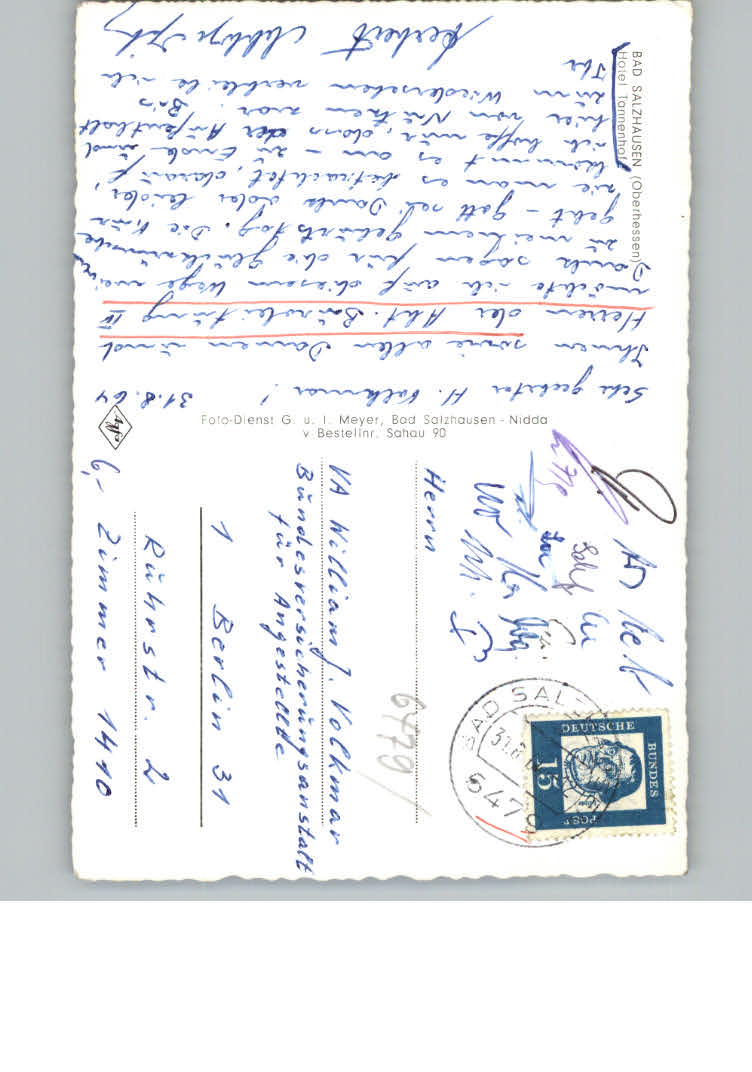 BAD SALZHAUSEN (Oberhessen)
Hotel Tannenhof
31.8.64
Sehr geehrter H. Volkmar!
Ihnen sowie allen Damen und
Herren der Abt. Büroleitung IV
möchte ich auf diesem Wege meinen
Dank sagen für die Glückwünsche
zu meinem Geburtstag. Die Kur
geht - Gott sei Dank oder leider,
wie man es betrachtet, darauf
kommt es an - zu Ende und
ich hoffe nur, dass der Aufenthalt
hier von Nutzen war. Bis
zum Wiedersehen verbleibe ich
Ihr
Herbert
Foto-Dienst G. u. I. Meyer, Bad Salzhausen - Nidda
v Bestellnr. Sahau 90
Agfa
Herrn
VA William J. Volkmar
Bundesversicherungsanstalt
für Angestellte
1 Berlin 31
Rührstr. 2
6,- Zimmer 1410
6479/
BAD SALZ
31.8.
6479
DEUTSCHE
BUNDES
POST
15